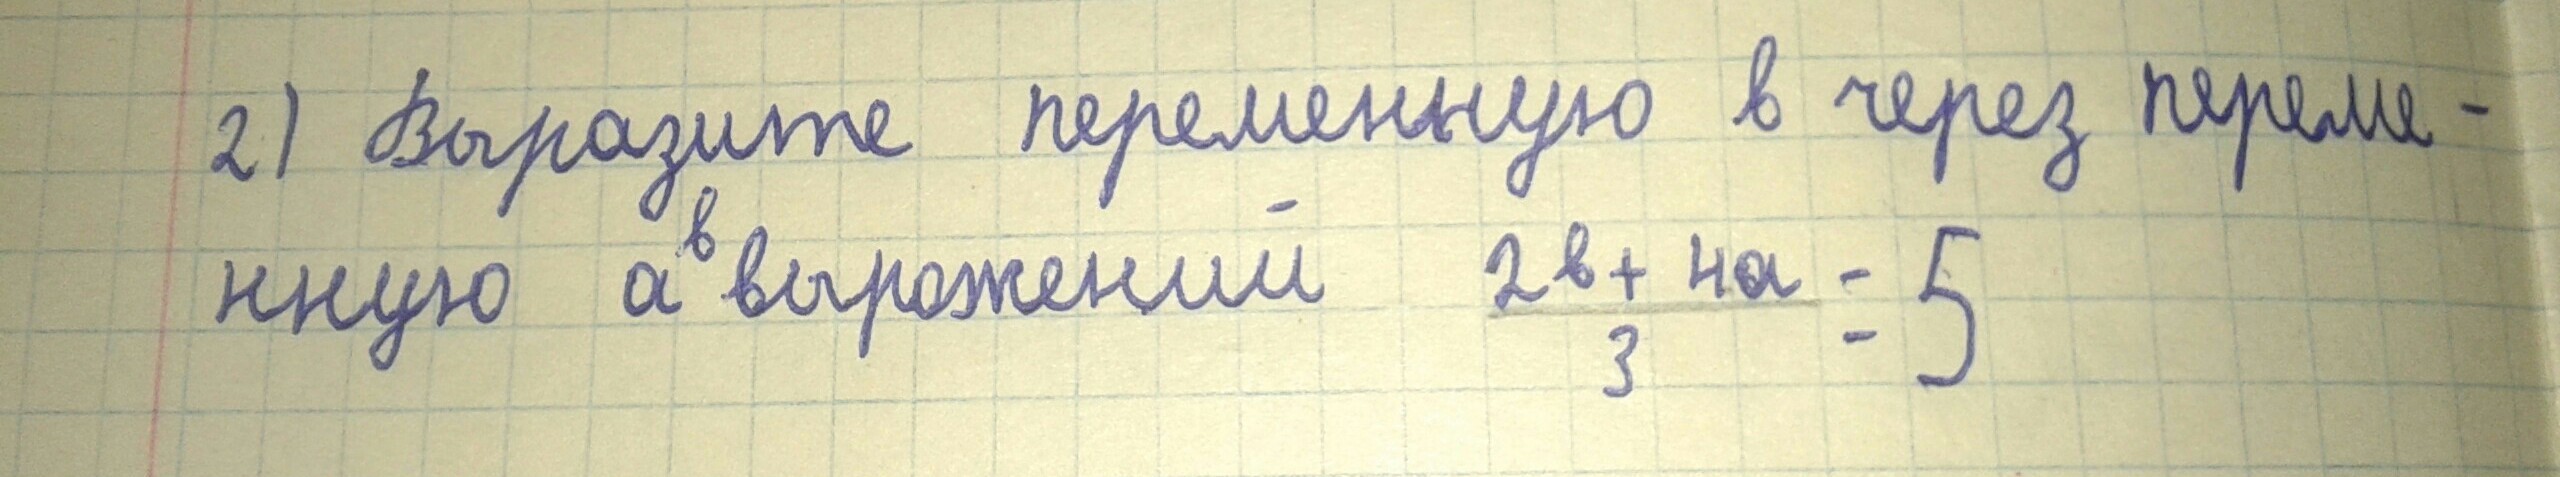 2) Выразите переменную в через переме-
нную а в вырожений 2в + 4а / 3 = 5